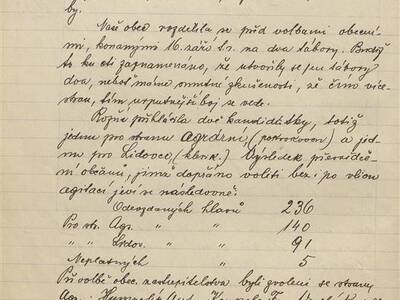 by.
Naše obec rozdělila se před volbami obecní-
mi, konanými 16. září t.r. na dva tábory. Budiž
to ku cti zaznamenáno, že utvořily se jen tábory
dva, neboť máme smutné zkušenosti, že čím více
stran, tím urputnější boj se vede.
přihlášla dvě kandidátky, totiž
jednu pro stranu Agrární, (pokrokovou) a jed-
nu pro Lidovou, (klerik.) Výsledek přesvědče-
ní občanů, jimž dopřáno voliti bez
agitací jeví se následovně:
Odevzdaných hlasů 236
Pro str. Agr. " " 140
" " Lidov. " " 91
Neplatných " 5
Při volbě obec. zastupitelstva byli zvoleni se strany
Agr.: